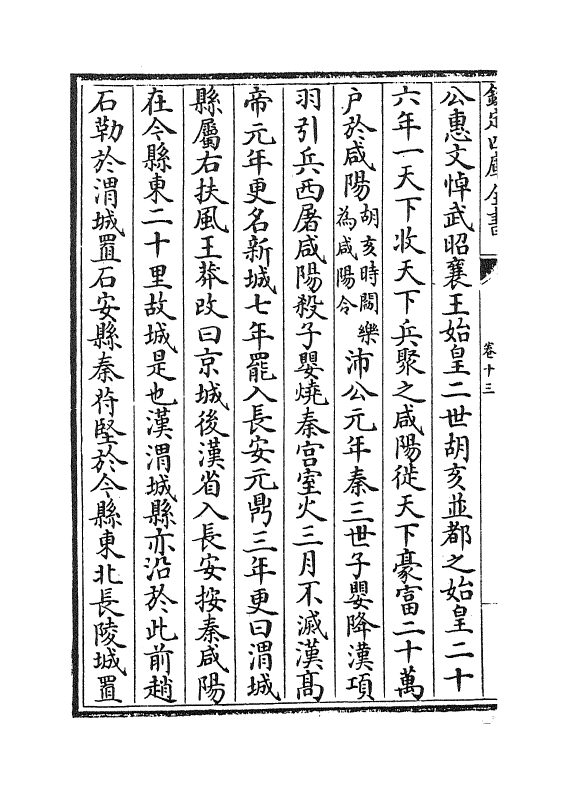 欽定四庫全書
卷十三
公惠文悼武昭襄王始皇二世胡亥並都之始皇二十
六年一天下收天下兵聚之咸陽徙天下豪富二十萬
户於咸陽胡亥時閻樂為咸陽令沛公元年秦三世子嬰降漢項
羽引兵西屠咸陽殺子嬰燒秦宫室火三月不滅漢髙
帝元年更名新城七年罷入長安元鼎三年更曰渭城
縣屬右扶風王莽改曰京城後漢省入長安按秦咸陽
在今縣東二十里故城是也漢渭城縣亦沿於此前趙
石勒於渭城置石安縣秦苻堅於今縣東北長陵城置